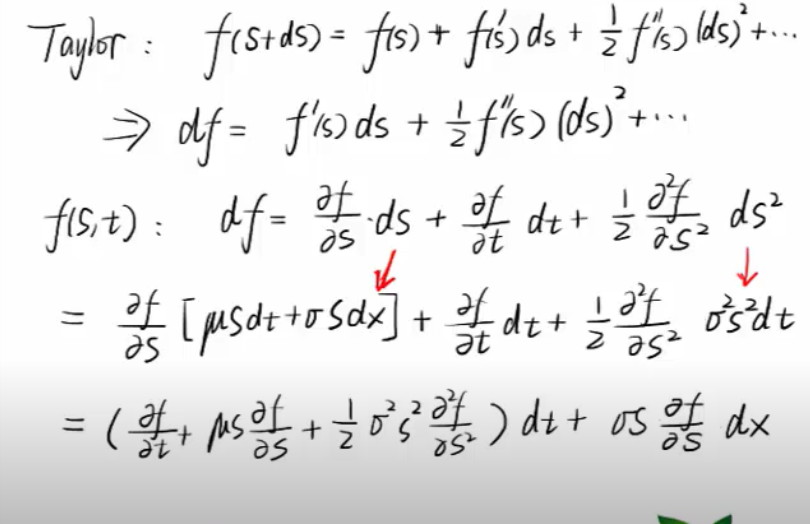 Taylor : f(s+ds) = f(s) + f'(s) ds + 1/2 f''(s) (ds)² + ⋯
⇒ df = f'(s) ds + 1/2 f''(s) (ds)² + ⋯
f(S,t) : df = ∂f/∂S · ds + ∂f/∂t dt + 1/2 ∂²f/∂S² ds²
= ∂f/∂S [μSdt + σSdx] + ∂f/∂t dt + 1/2 ∂²f/∂S² σ²s²dt
= ( ∂f/∂t + μS ∂f/∂S + 1/2 σ²s² ∂²f/∂S² ) dt + σS ∂f/∂S dx